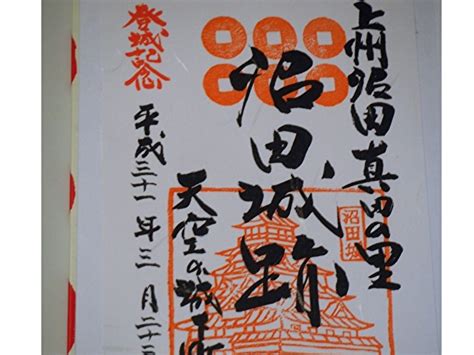 上州沼田真田の里
沼田城跡
沼田城
天空の城下町
登城記念
平成三十一年三月二十二